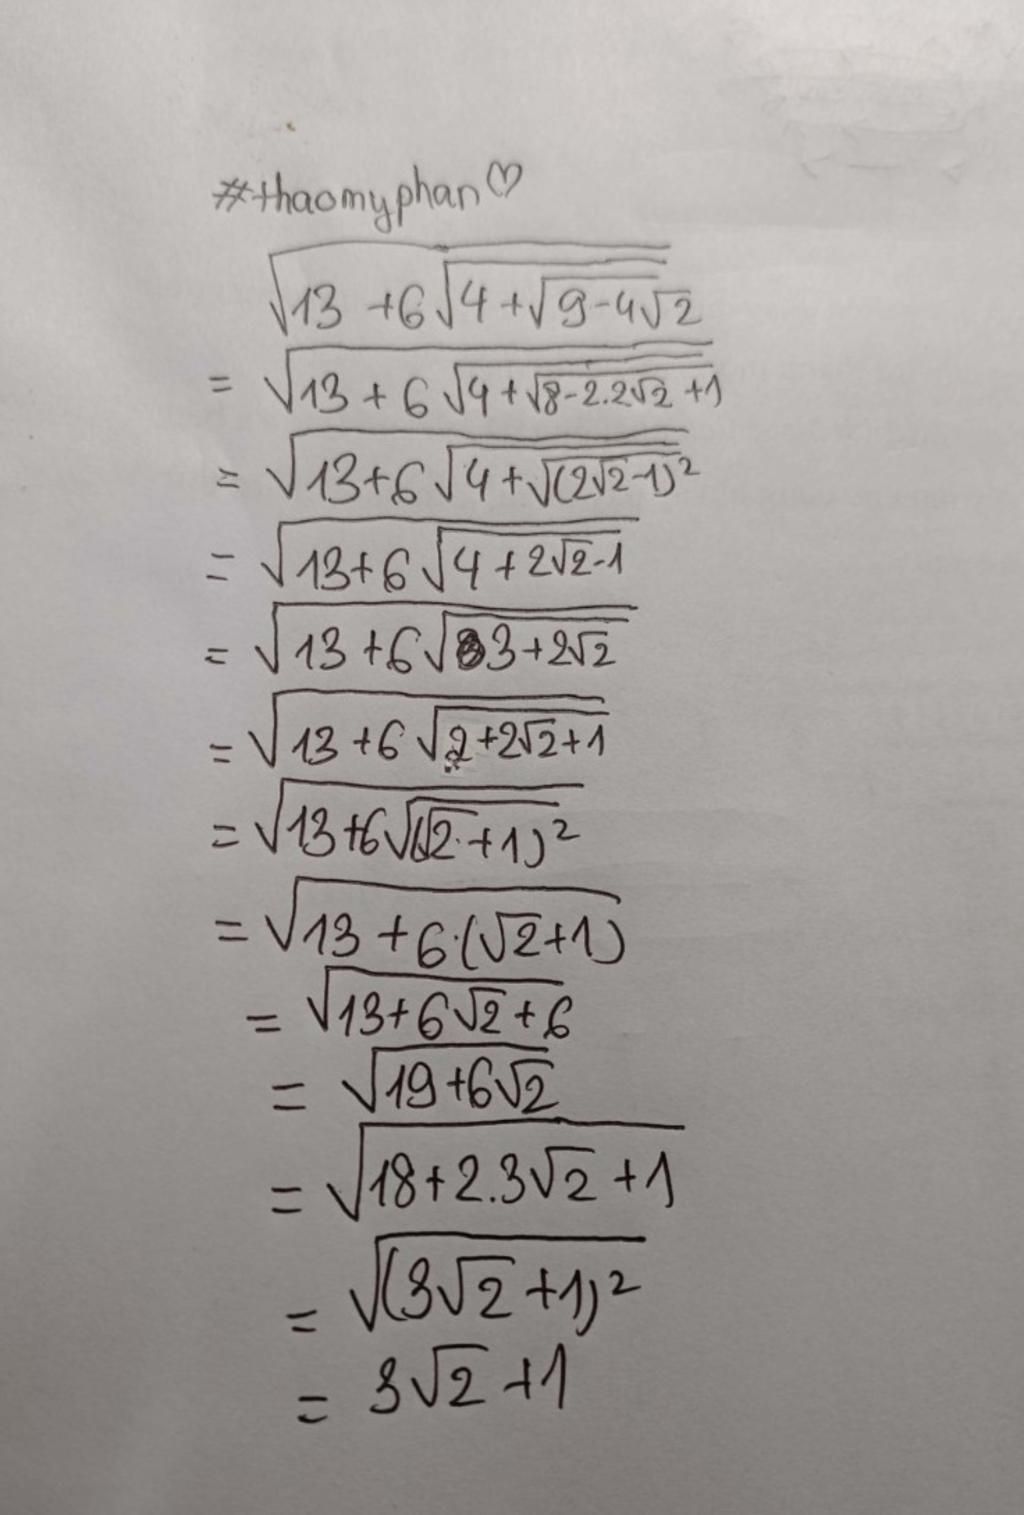 #thaomyphan♡
√(13 + 6√(4 + √(9 - 4√2)))
= √(13 + 6√(4 + √(8 - 2.2√2 + 1)))
= √(13 + 6√(4 + √((2√2 - 1)²)))
= √(13 + 6√(4 + 2√2 - 1))
= √(13 + 6√(3 + 2√2))
= √(13 + 6√(2 + 2√2 + 1))
= √(13 + 6√((√2 + 1)²))
= √(13 + 6.(√2 + 1))
= √(13 + 6√2 + 6)
= √(19 + 6√2)
= √(18 + 2.3√2 + 1)
= √((3√2 + 1)²)
= 3√2 + 1